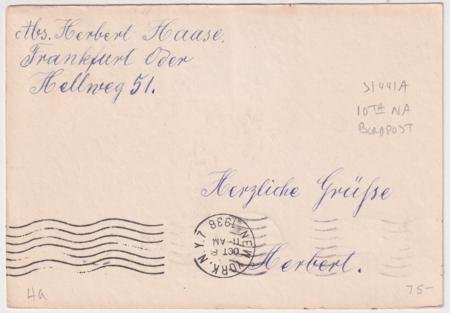 Abs. Herbert Haase.
Frankfurt Oder
Hellweg 51.
S1441A
10TH NA
BORDPOST
Herzliche Grüße
Herbert.
NEW YORK, N.Y. 7
OCT 6
11-AM
1938
4a
75-